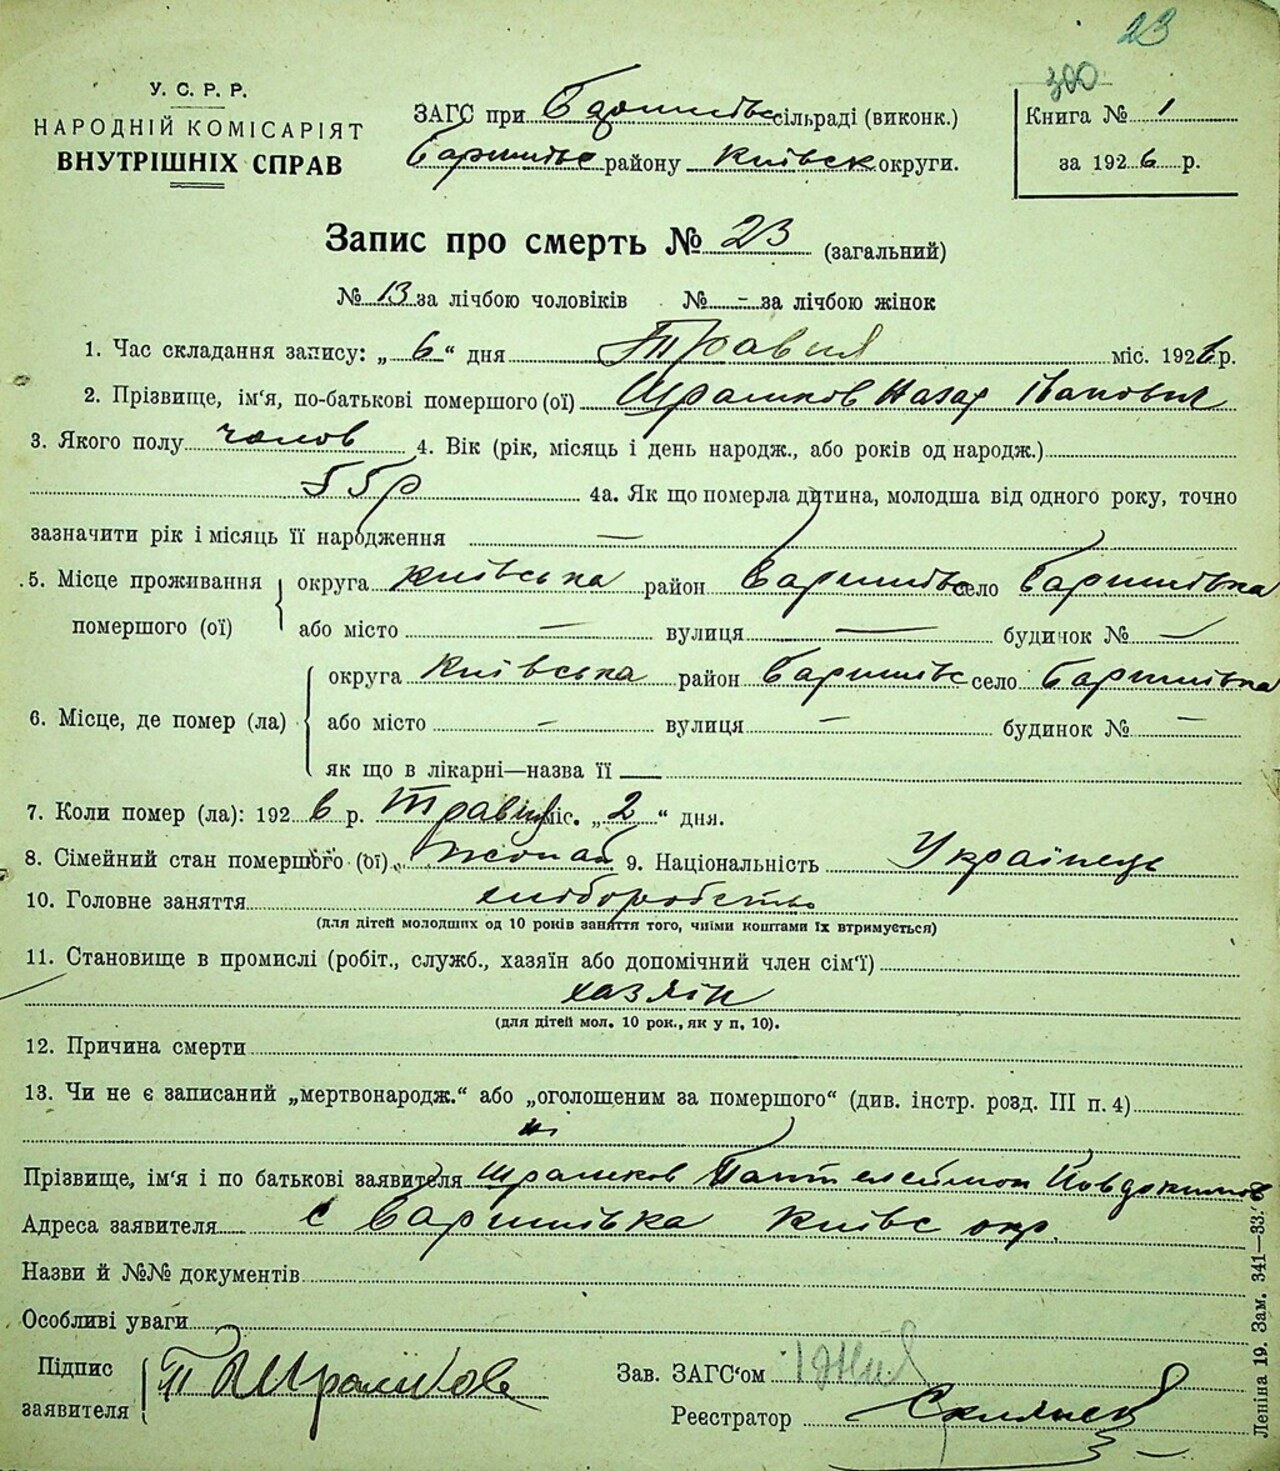 23
300
У. С. Р. Р.
НАРОДНІЙ КОМІСАРІЯТ
ВНУТРІШНІХ СПРАВ
ЗАГС при Баришівс сільраді (виконк.)
Баришівс району Київськ округи.
Книга № 1
за 1926 р.
Запис про смерть № 23 (загальний)
№ 13 за лічбою чоловіків № - за лічбою жінок
1. Час складання запису: „ 6 “ дня Травня міс. 1926 р.
2. Прізвище, ім'я, по-батькові помершого (ої) Шрамков Назар Іванович
3. Якого полу чолов 4. Вік (рік, місяць і день народж., або років од народж.)
55 р 4а. Як що померла дитина, молодша від одного року, точно
зазначити рік і місяць її народження —
5. Місце проживання помершого (ої) округа Київська район Баришівс село Баришівка
або місто — вулиця — будинок № —
6. Місце, де помер (ла) округа Київська район Баришівс село Баришівка
або місто — вулиця — будинок № —
як що в лікарні—назва її —
7. Коли помер (ла): 1926 р. Травня міс. „ 2 “ дня.
8. Сімейний стан помершого (ої) жонат 9. Національність Українець
10. Головне заняття хліборобство
(для дітей молодших од 10 років заняття того, чиїми коштами їх втримується)
11. Становище в промислі (робіт., служб., хазяїн або допомічний член сім'ї)
хазяін
(для дітей мол. 10 рок., як у п. 10).
12. Причина смерти
13. Чи не є записаний „мертвонародж.“ або „оголошеним за помершого“ (див. інстр. розд. III п. 4)
ні
Прізвище, ім'я і по батькові заявителя Шрамков Пантелеймон Йовдокимов
Адреса заявителя с Баришівка Київс окр.
Назви й №№ документів
Особливі уваги
Підпис заявителя П Шрамков
Зав. ЗАГС'ом
Реєстратор
Леніна 19. Зам. 341—33.